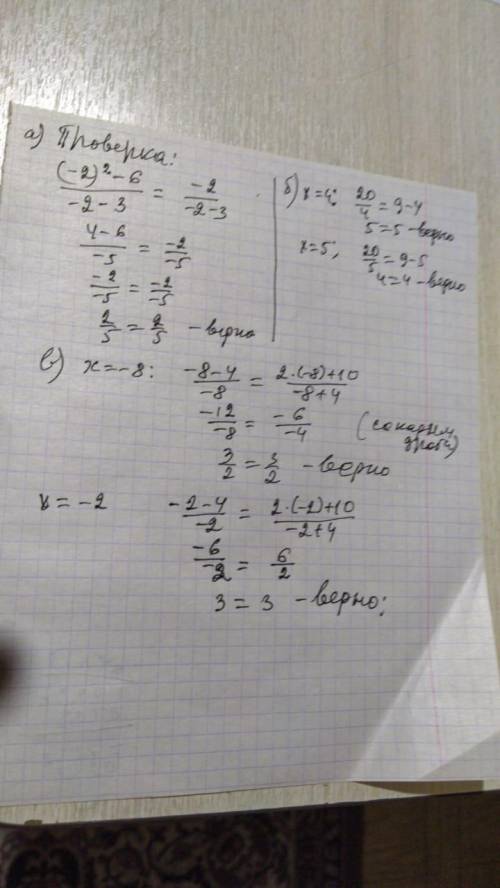 а) Проверка:
((-2)² - 6)/(-2 - 3) = (-2)/(-2 - 3)
(4 - 6)/(-5) = (-2)/(-5)
(-2)/(-5) = (-2)/(-5)
2/5 = 2/5 - верно
б) x = 4; 20/4 = 9 - 4
5 = 5 - верно
x = 5; 20/5 = 9 - 5
4 = 4 - верно
в) x = -8: (-8 - 4)/(-8) = (2·(-8) + 10)/(-8 + 4)
(-12)/(-8) = (-6)/(-4) (сократим дроби)
3/2 = 3/2 - верно
x = -2 (-2 - 4)/(-2) = (2·(-2) + 10)/(-2 + 4)
(-6)/(-2) = 6/2
3 = 3 - верно;